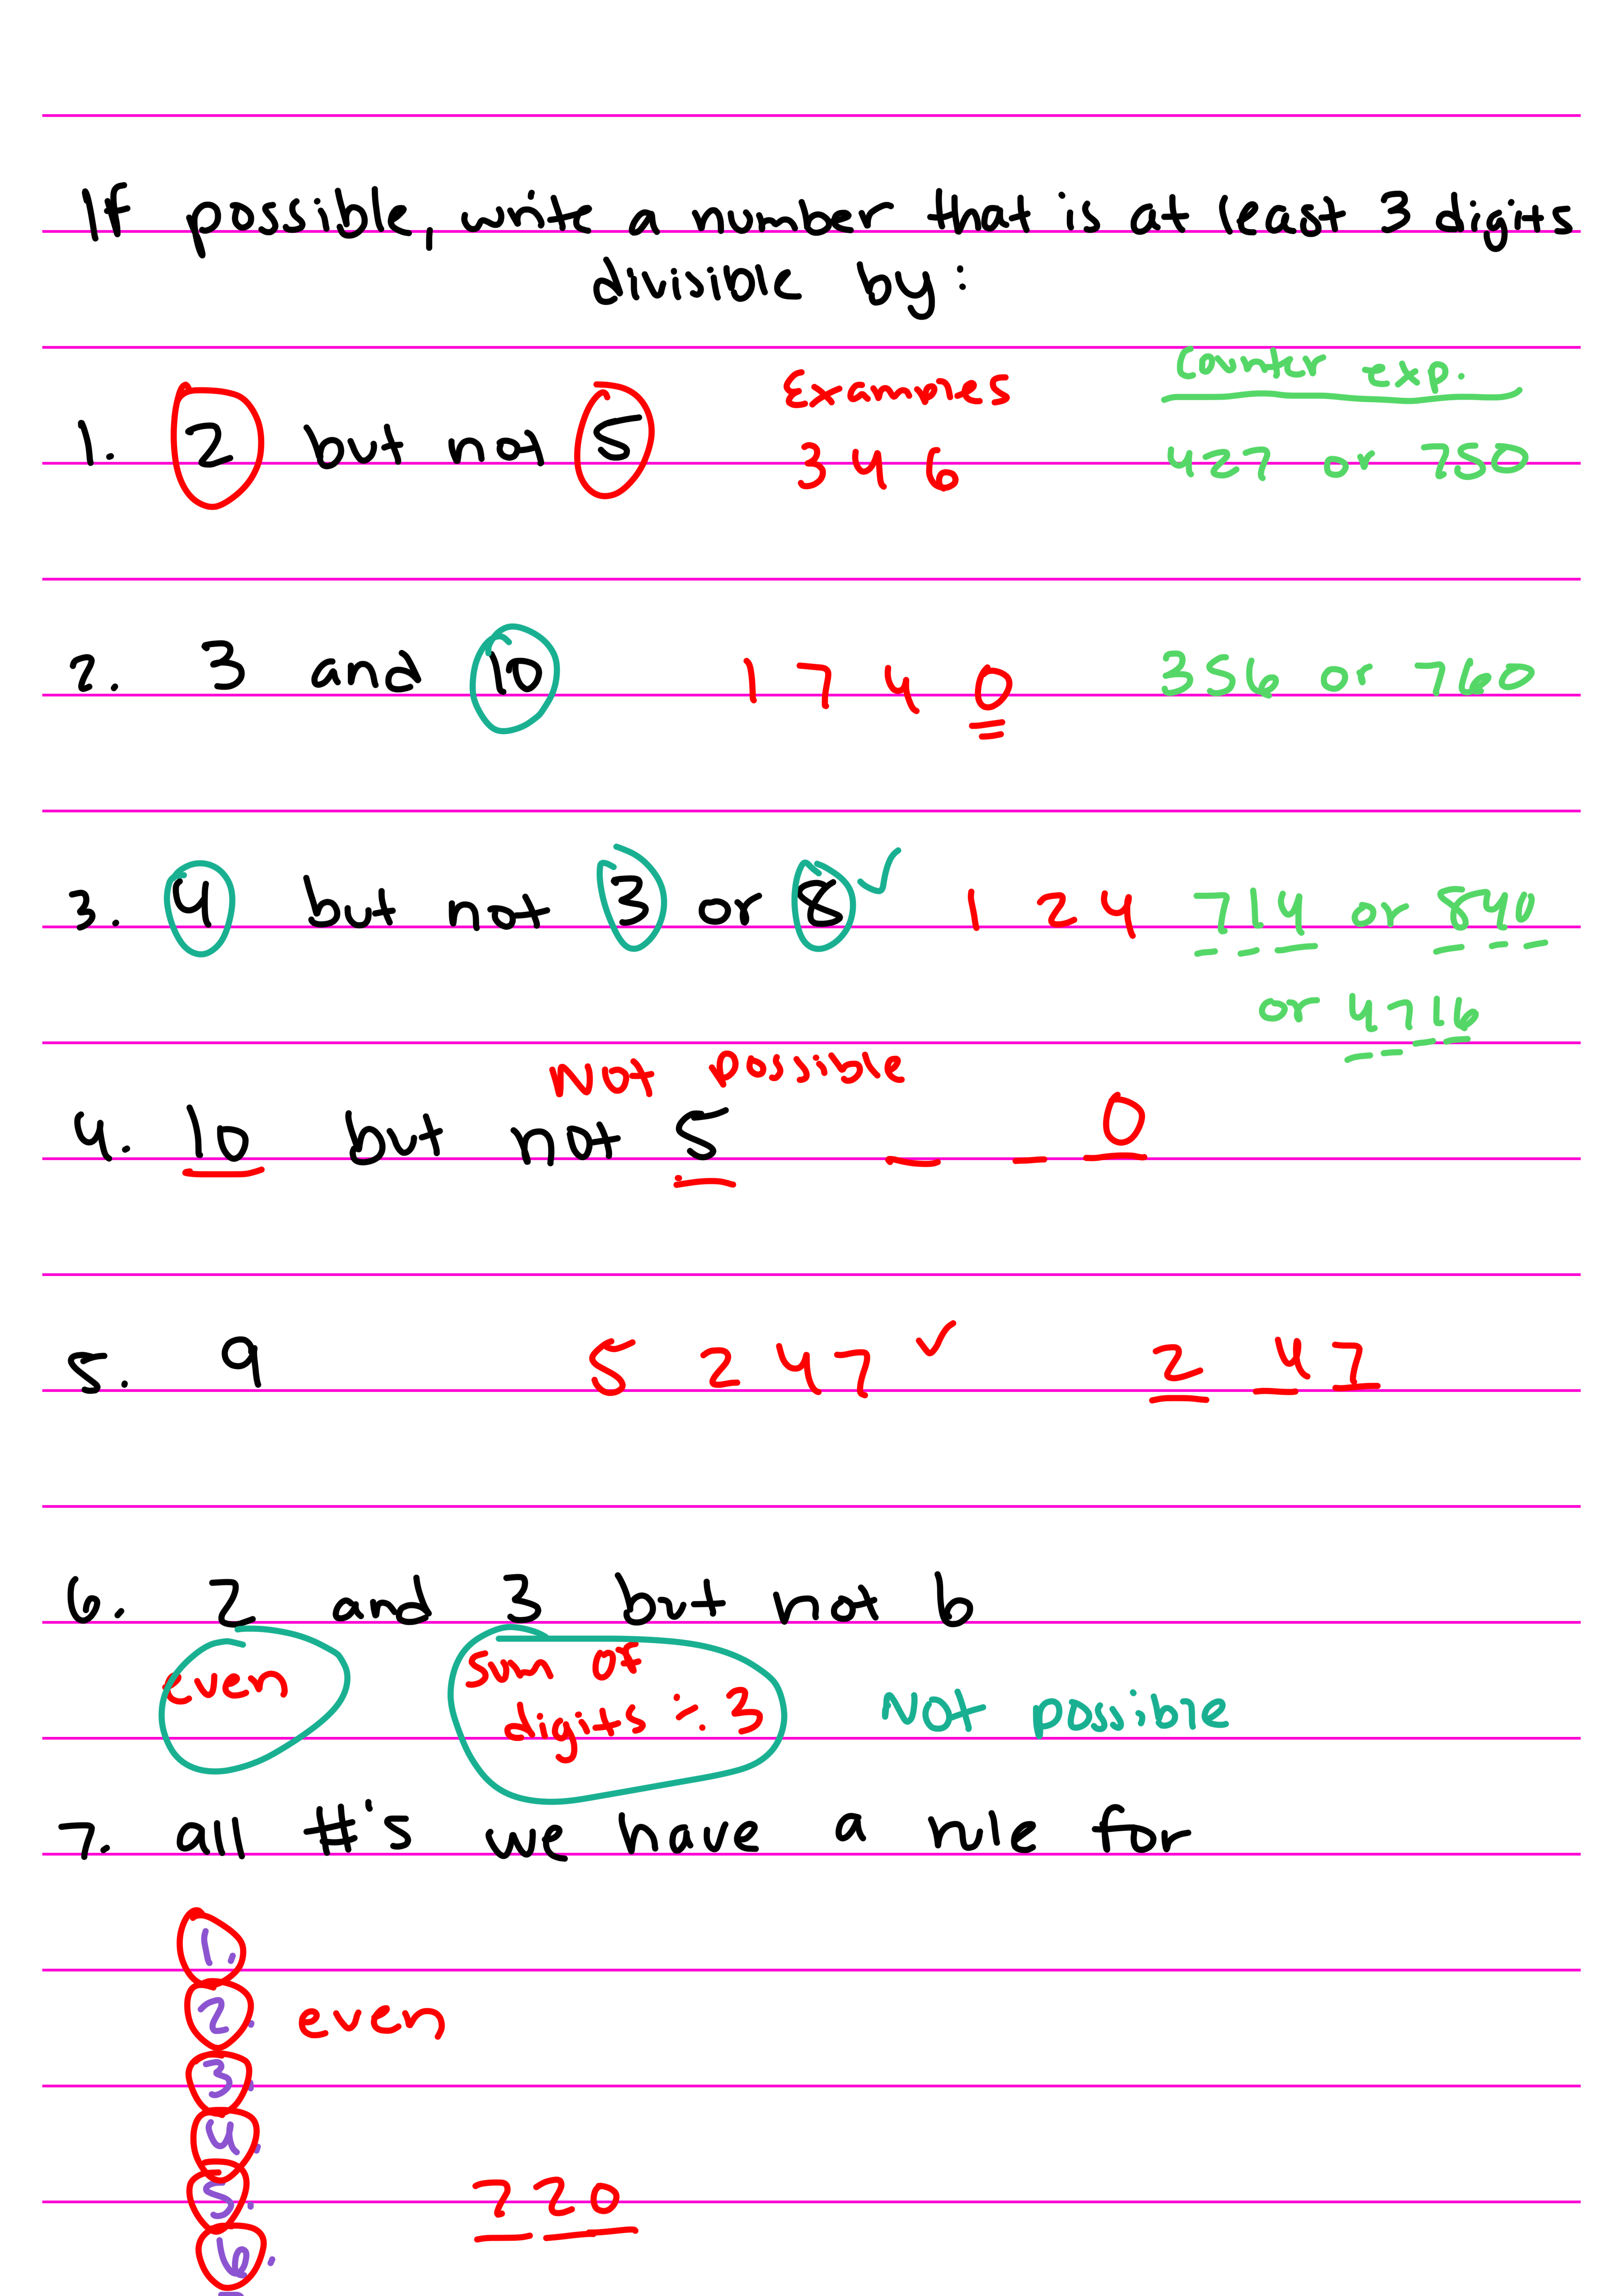 If possible, write a number that is at least 3 digits
divisible by:
Examples
Counter exp.
1. 2 but not 5 346 427 or 750
2. 3 and 10 1740 356 or 760
3. 4 but not 3 or 8 ✓ 124 714 or 840
or 4716
Not possible
4. 10 but not 5 _ _ 0
5. 9 5 247 ✓ 2 4 7
6. 2 and 3 but not 6
even sum of
digits ÷ 3 Not possible
7. all #'s we have a rule for
1.
2. even
3.
4.
5. 720
6.